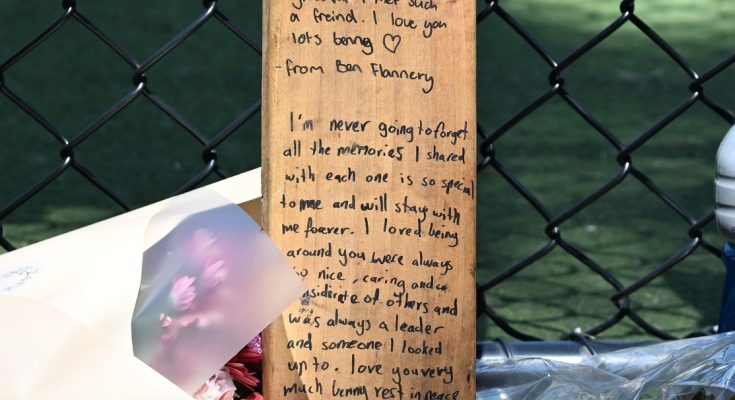 I met such
a freind. I love you
lots benny ♡
-from Ben Flannery
I'm never going to forget
all the memories I shared
with each one is so special
to me and will stay with
me foerver. I loved being
around you were always
so nice, caring and
considirate of others and
was always a leader
and someone I looked
up to. love you very
much benny rest in peace